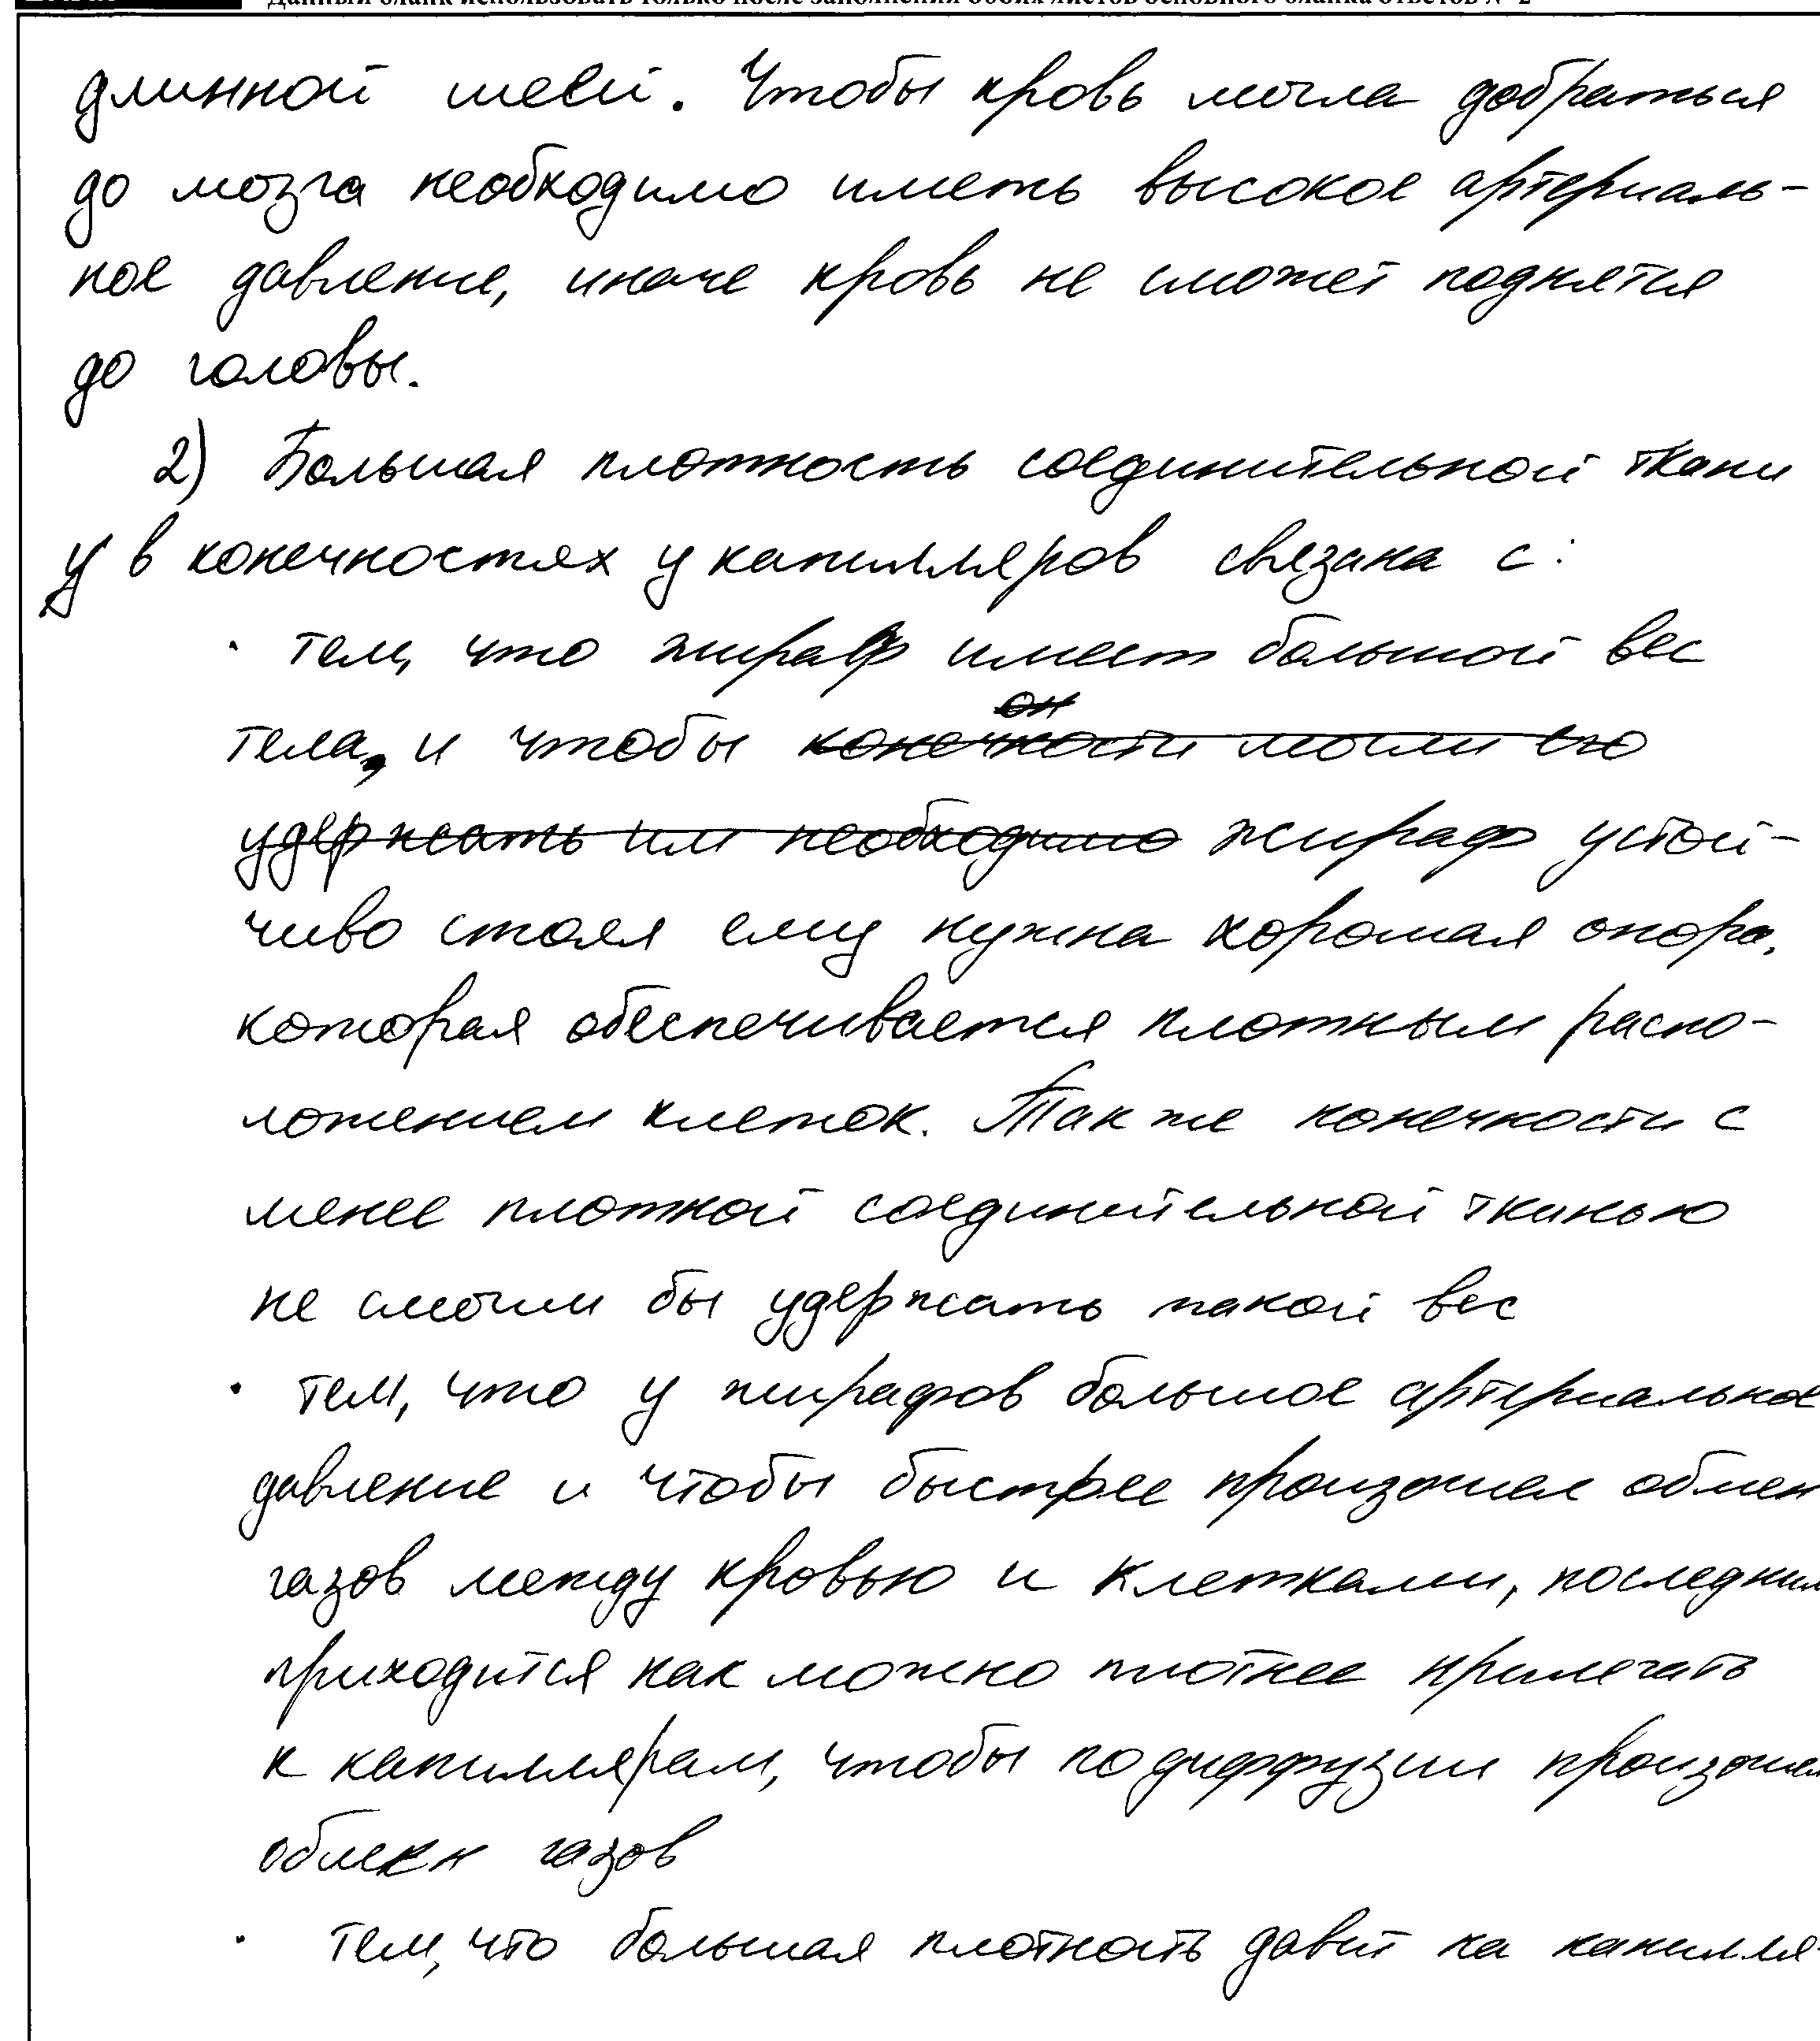 Данный бланк использовать только после заполнения обоих листов основного бланка ответов № 2
длинной шеей. Чтобы кровь могла добраться
до мозга необходимо иметь высокое артериаль-
ное давление, иначе кровь не сможет поднятся
до головы.
2) Большая плотность соединительной ткани
у в конечностях у капилляров связана с:
· тем, что жираф имеет большой вес
он
тела, и чтобы конечности могли его
удержать им необходимо жираф устой-
чиво стоял ему нужна хорошая опора,
которая обеспечивается плотным распо-
ложением клеток. Так же конечности с
менее плотной соединительной тканью
не смогли бы удержать такой вес
· тем, что у жирафов большое артериальное
давление и чтобы быстрее произошел обмен
газов между кровью и клетками, последним
приходится как можно плотнее прилегать
к капиллярам, чтобы по диффузии произошел
обмен газов
· тем, что большая плотность давит на капилля-